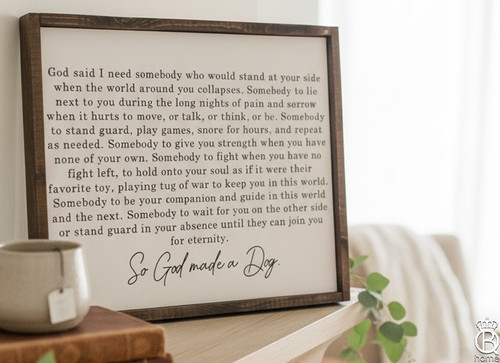 God said I need somebody who would stand at your side
when the world around you collapses. Somebody to lie
next to you during the long nights of pain and sorrow
when it hurts to move, or talk, or think, or be. Somebody
to stand guard, play games, snore for hours, and repeat
as needed. Somebody to give you strength when you have
none of your own. Somebody to fight when you have no
fight left, to hold onto your soul as if it were their
favorite toy, playing tug of war to keep you in this world.
Somebody to be your companion and guide in this world
and the next. Somebody to wait for you on the other side
or stand guard in your absence until they can join you
for eternity.
So God made a Dog.
home